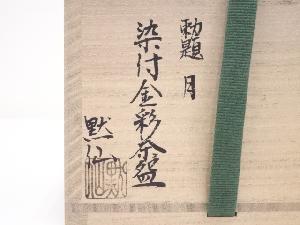 勅題 月
染付金彩茶盌
黙仙